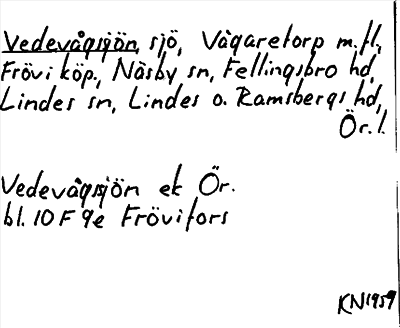 Vedevågsjön, sjö, Vågaretorp m.fl.,
Frövi köp., Näsby sn, Fellingsbro hd,
Lindes sn, Lindes o. Ramsbergs hd,
Ör. l.
Vedevågsjön ek Ör.
bl. 10 F 9e Frövifors
KN 1959